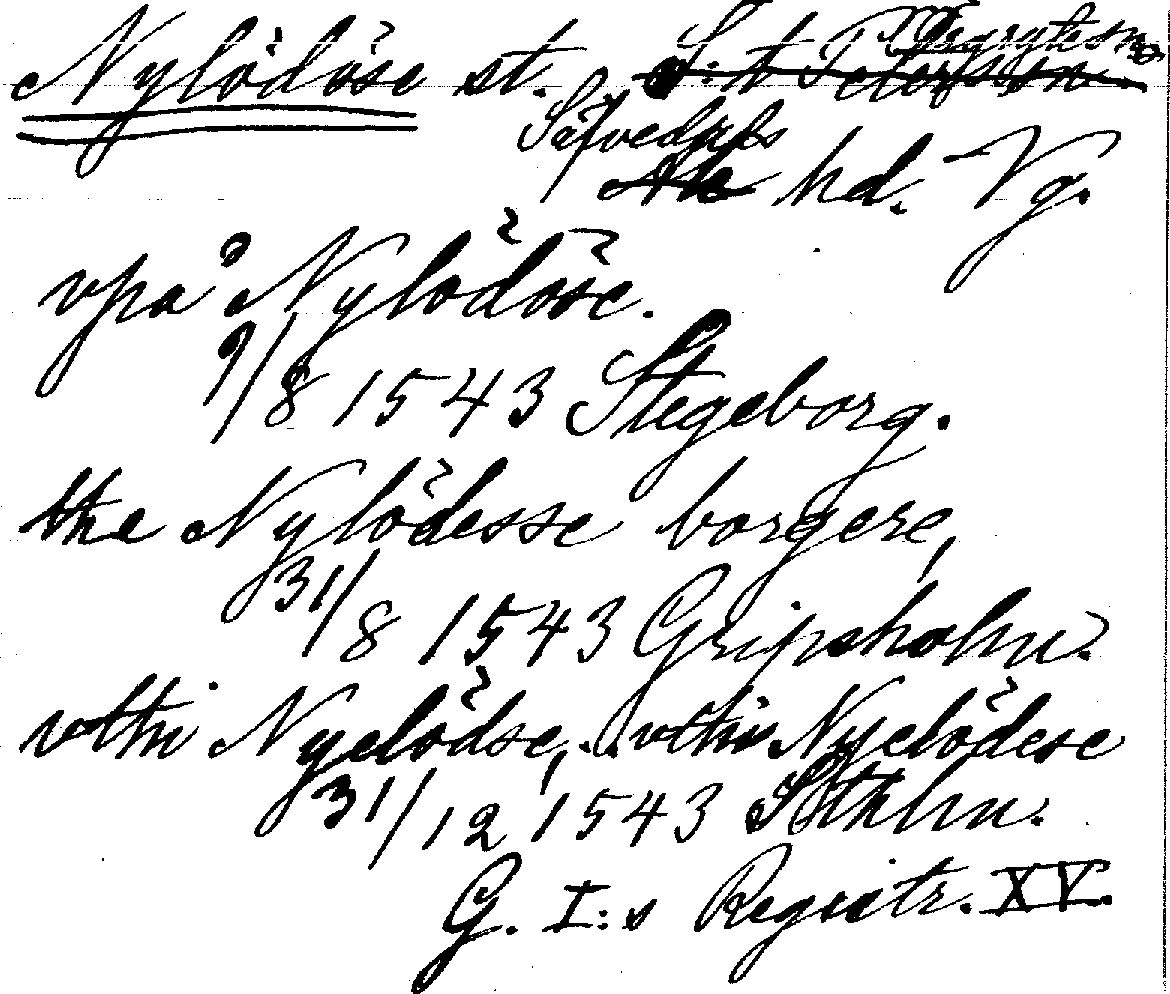 Nylödöse st. S:t Peters sn. Örgryte sn
Sävedals
Ale hd. Vg.
vpå Nylödöse.
9/8 1543 Stegeborg.
the Nylödesse borgere,
31/8 1543 Gripsholm.
vthi Nyelödse, .. vthi Nyelödese
31/12 1543 Sthlm.
G. I:s Registr. XV.